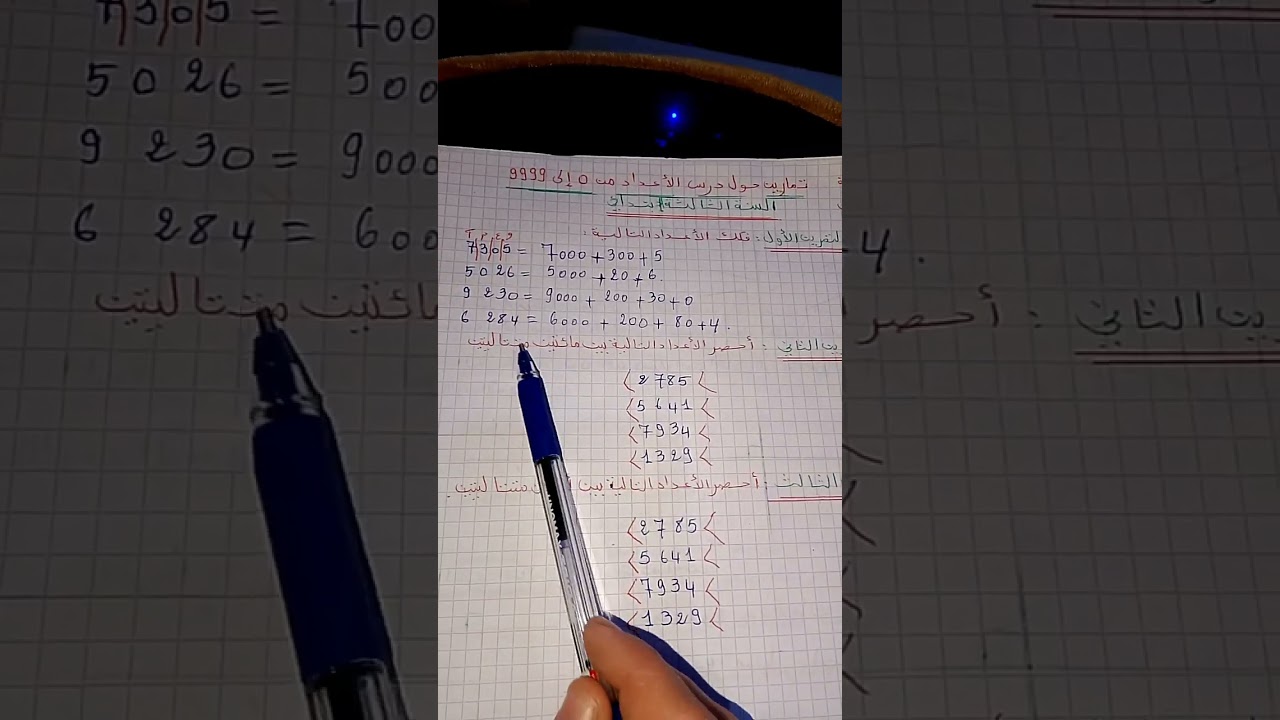 تمارين حول درس الأعداد من 0 إلى 9999
السنة الثالثة ابتدائي
التمرين الأول: فكك الأعداد التالية:
7305 = 7000 + 300 + 5
5026 = 5000 + 20 + 6.
9 230 = 9000 + 200 + 30 + 0
6 284 = 6000 + 200 + 80 + 4.
التمرين الثاني: أحصر الأعداد التالية بين مائتين متتاليتين
〈 2785 〈
〈 5641 〈
〈 7934 〈
〈 1329 〈
الثالث: أحصر الأعداد التالية بين متتاليتين.
〈 2785 〈
〈 5641 〈
〈 7934 〈
〈 1329 〉